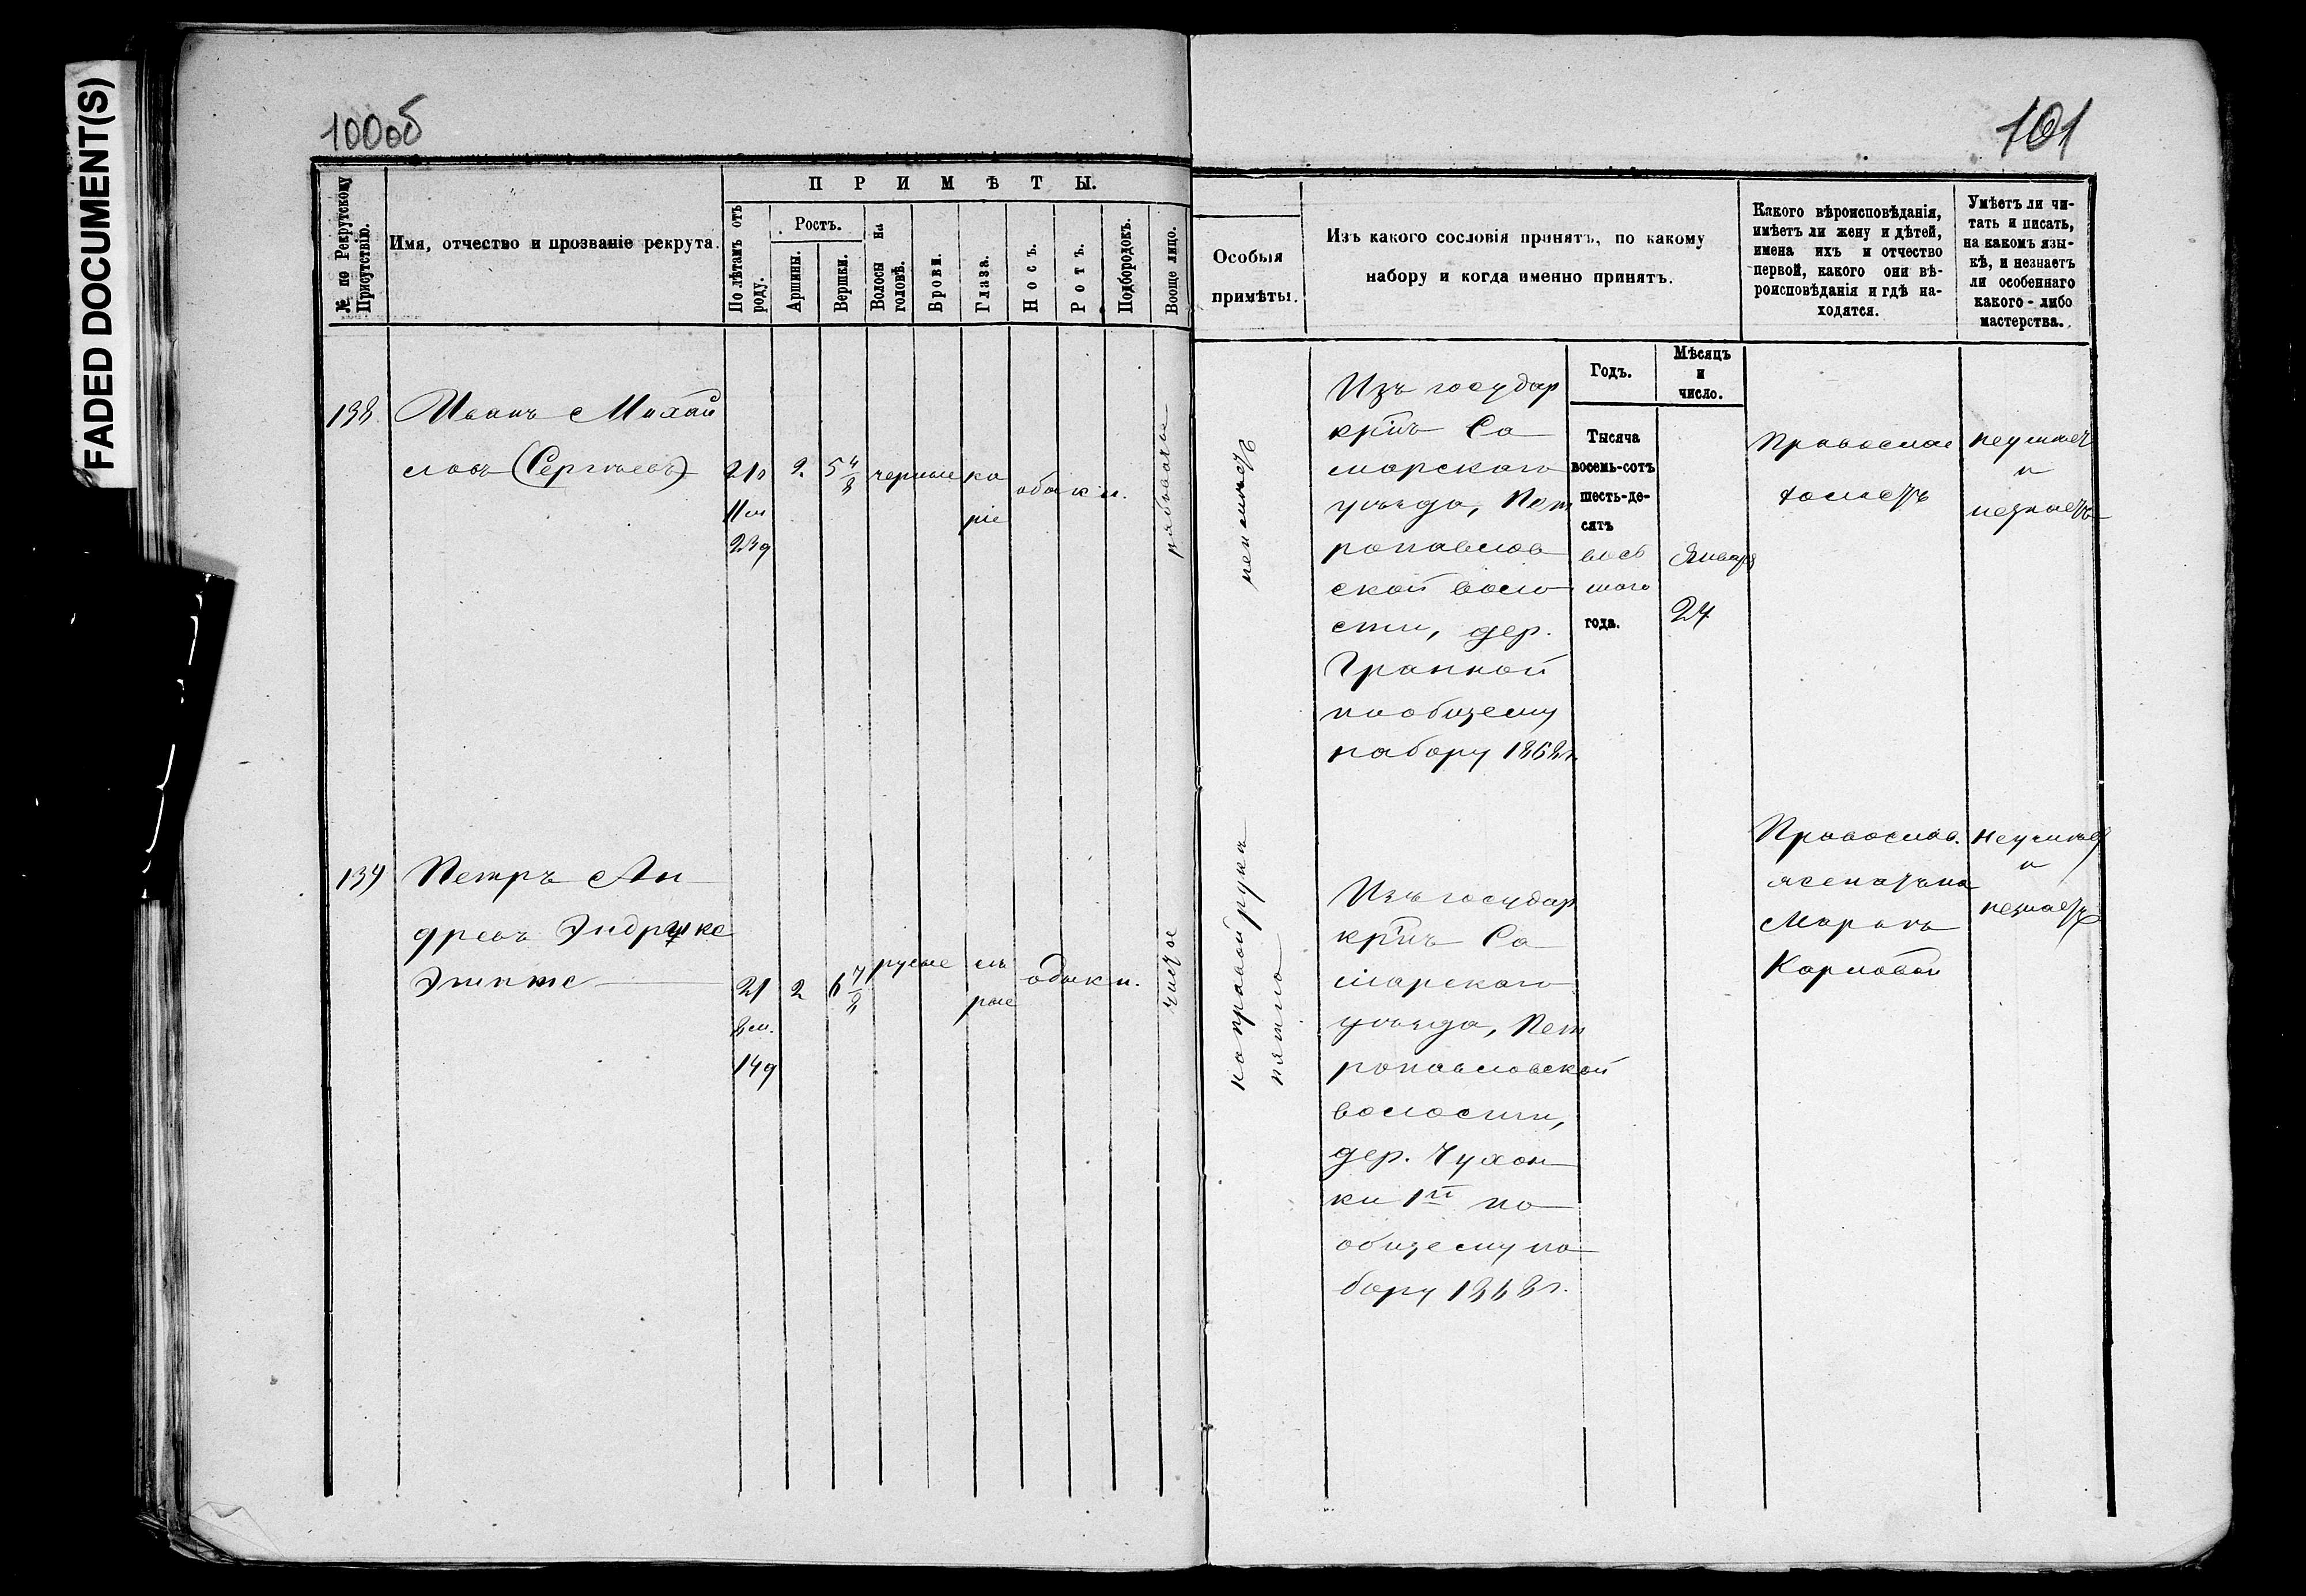 FADED DOCUMENT(S)
100об
101
№ по Рекрутскому Присутствію.
Имя, отчество и прозваніе рекрута.
ПРИМѢТЫ.
По лѣтамъ отъ роду.
Ростъ.
Аршины.
Вершки.
Волосы на головѣ.
Брови.
Глаза.
Носъ.
Ротъ.
Подбородокъ.
Вооще лицо.
Особыя
примѣты.
Изъ какого сословія принятъ, по какому
набору и когда именно принятъ.
Какого вѣроисповѣданія,
имѣетъ ли жену и дѣтей,
имена ихъ и отчество
первой, какого они вѣ-
роисповѣданія и гдѣ на-
ходятся.
Умѣетъ ли чи-
тать и писать,
на какомъ язы-
кѣ, и незнаетъ
ли особеннаго
какого-либо
мастерства.
Годъ.
Мѣсяцъ
и
число.
138
Иванъ Михай
ловъ (Сергѣевъ)
21
11 м
23 д
2.
5 4/8
черные
ка
ріе
обыкн.
рябоватое
неимѣетъ
Изъ государ
кр̃нъ Са
марскаго
уѣзда, Пет
ропавлов
ской воло
сти, дер.
Гранной
по общему
набору 1868 г.
Тысяча
восемь-сотъ
шесть-де-
сятъ
вось
маго
года.
Января
24
Православ
холостъ
неумѣетъ
и
незнаетъ
139
Петръ Ан
древъ Эндрукс
21
8 м.
14 д
2
6 7/8
русые
сѣ
рые
обыкн.
чистое
на правой рукѣ
пятно
Изъ государ
кр̃нъ Са
марскаго
уѣзда, Пет
ропавловской
волости,
дер. Чухон
ки 1й по
общему на
бору 1868 г.
Православ.
женатъ на
Марьѣ
Карловой
Неумѣетъ
и
незнаетъ